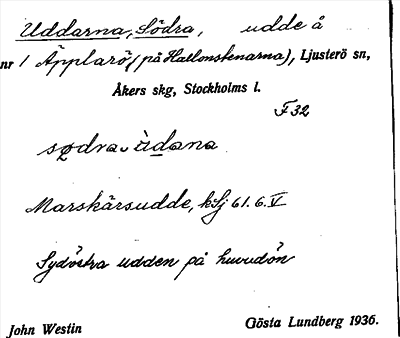 Uddarna, Södra, udde å
nr 1 Äpplarö (på Hallonstenarna), Ljusterö sn,
Åkers skg, Stockholms l.
F32
sødra ùdana
Marskärsudde, kSj 61.6.V
Sydöstra udden på huvudön
John Westin Gösta Lundberg 1936.